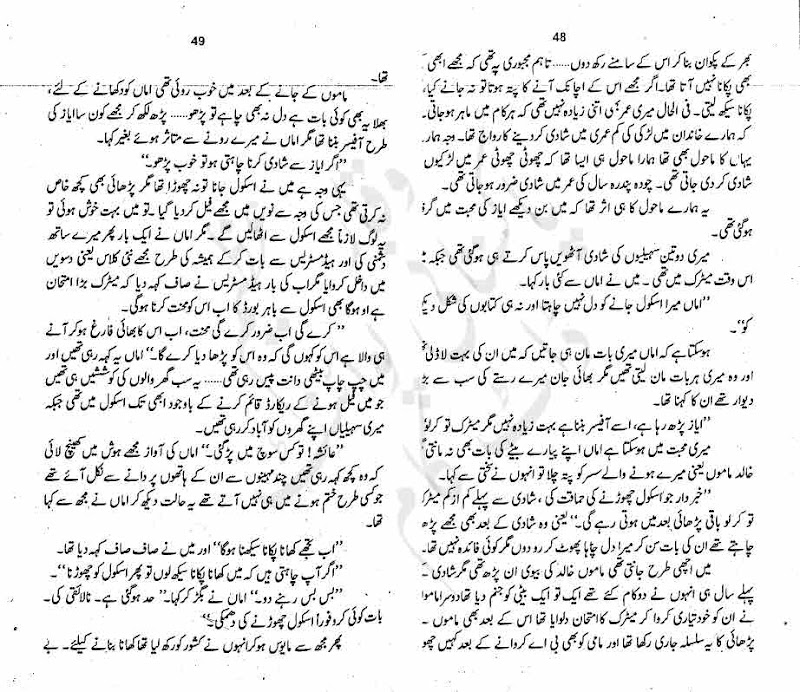 48
بھر کے پکوان بنا کر اس کے سامنے رکھ دوں...... تاہم مجبوری یہ تھی کہ مجھے ابھی
پکانا نہیں آتا تھا۔ اگر مجھے اس کے اچانک آنے کا پتہ ہوتا تو نہ جانے کیا،
پکانا سیکھ لیتی۔ فی الحال میری عمر بھی اتنی زیادہ نہیں تھی کہ ہر کام میں ماہر ہو جاتی۔
کہ ہمارے خاندان میں لڑکی کی کم عمری میں شادی کر دینے کا رواج تھا۔ وجہ ہمار
یہاں کا ماحول بھی تھا ہمارا ماحول ہی ایسا تھا کہ چھوٹی چھوٹی عمر میں لڑکیوں
شادی کر دی جاتی تھی۔ چودہ پندرہ سال کی عمر میں شادی ضرور ہو جاتی تھی۔
یہ ہمارے ماحول کا ہی اثر تھا کہ میں بن دیکھے ایاز کی محبت میں گرف
ہو گئی تھی۔
میری دو تین سہیلیوں کی شادی آٹھویں پاس کرتے ہی ہو گئی تھی جبکہ
اس وقت میٹرک میں تھی۔ میں نے اماں سے کئی بار کہا۔
”اماں میرا اسکول جانے کو دل نہیں چاہتا اور نہ ہی کتابوں کی شکل دیک
کو“۔
ہو سکتا ہے کہ اماں میری بات مان ہی جاتیں کہ میں ان کی بہت لاڈلی
اور وہ میری ہر بات مان لیتی تھیں مگر بھائی جان میرے رستے کی سب سے بڑ
دیوار تھے ان کا کہنا تھا۔
”ایاز پڑھ رہا ہے، اسے آفیسر بننا ہے بہت زیادہ نہیں مگر میٹرک تو کر لو
میری محبت میں ہو سکتا ہے اماں اپنے پیارے بیٹے کی بات بھی نہ مانتی
خالد ماموں یعنی میرے ہونے والے سسر کو پتہ چلا تو انہوں نے سختی سے کہا۔
”خبردار جو اسکول چھوڑنے کی حماقت کی، شادی سے پہلے کم از کم میٹر
تو کر لو باقی پڑھائی بعد میں ہوتی رہے گی۔“ یعنی وہ شادی کے بعد بھی مجھے پڑھ
چاہتے تھے ان کی بات سن کر میرا دل چاہا پھوٹ کر رو دوں مگر کوئی فائدہ نہیں تھا۔
میں اچھی طرح جانتی تھی ماموں خالد کی بیوی ان پڑھ تھی مگر شادی۔
پہلے سال ہی انہوں نے دو کام کئے تھے ایک تو ایک بیٹی کو جنم دیا تھا دوسرا ماموا
نے ان کو خود تیاری کروا کر میٹرک کا امتحان دلوایا تھا اس کے بعد بھی ماموں۔
پڑھائی کا یہ سلسلہ جاری رکھا تھا اور مامی کو بھی بی اے کروانے کے بعد کہیں چھو
49
تھا۔
ماموں کے جانے کے بعد میں خوب روئی تھی اماں کو دکھانے کے لئے،
بھلا یہ بھی کوئی بات ہے دل نہ بھی چاہے تو پڑھو...... پڑھ لکھ کر مجھے کون سا ایاز کی
طرح آفیسر بننا تھا مگر اماں نے میرے رونے سے متاثر ہوئے بغیر کہا۔
”اگر ایاز سے شادی کرنا چاہتی ہو تو خوب پڑھو۔“
یہی وجہ ہے میں نے اسکول جانا تو نہ چھوڑا تھا مگر پڑھائی بھی کچھ خاص
نہ کرتی تھی جس کی وجہ سے نویں میں مجھے فیل کر دیا گیا۔ تو میں بہت خوش ہوئی تو
یہ لوگ لازماً مجھے اسکول سے اٹھا لیں گے۔ مگر اماں نے ایک بار پھر میرے ساتھ
دشمنی کی اور ہیڈ مسٹریس سے بات کر کے ہمیشہ کی طرح مجھے نئی کلاس یعنی دسویں
میں داخل کروایا مگر اب کی بار ہیڈ مسٹریس نے صاف کہہ دیا کہ میٹرک بڑا امتحان
ہے اور ہوگا بھی اسکول سے باہر بورڈ کا اب اس کو محنت کرنا ہوگی۔
”کرے گی اب ضرور کرے گی محنت، اب اس کا بھائی فارغ ہو کر آنے
ہی والا ہے اس کو کہوں گی کہ وہ اس کو پڑھا دیا کرے گا۔“ اماں یہ کہہ رہی تھیں اور
میں چپ چاپ بیٹھی دانت پیس رہی تھی...... یہ سب گھر والوں کی کوششیں ہی تھیں
جو میں فیل ہونے کے ریکارڈ قائم کرنے کے باوجود ابھی تک اسکول میں تھی جبکہ
میری سہیلیاں اپنے گھروں کو آباد کر رہی تھیں۔
”عائشہ! تو کس سوچ میں پڑ گئی۔“ اماں کی آواز مجھے ہوش میں کھینچ لائی
کہ وہ کچھ کہہ رہی تھیں چند مہینوں سے ان کے ہاتھوں پر دانے سے نکل آئے تھے
جو کسی طرح ختم ہونے میں ہی نہیں آتے تھے یہ حالت دیکھ کر اماں نے مجھ سے کہا
تھا۔
”اب تجھے کھانا پکانا سیکھنا ہوگا“ اور میں نے صاف صاف کہہ دیا تھا۔
”اگر آپ چاہتی ہیں کہ میں کھانا پکانا سیکھ لوں تو پھر اسکول کو چھوڑنا“۔
”بس بس رہنے دو۔“ اماں نے بگڑ کر کہا۔ ”حد ہو گئی ہے۔ نالائقی کی۔
بات کوئی کرو فوراً اسکول چھوڑنے کی دھمکی۔“
پھر مجھ سے مایوس ہو کر انہوں نے کشور کو رکھ لیا تھا کھانا بنانے کیلئے۔ بے